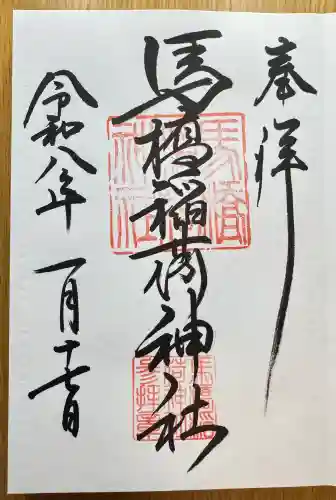 奉拝
馬橋稲荷神社
令和八年
一月十七日